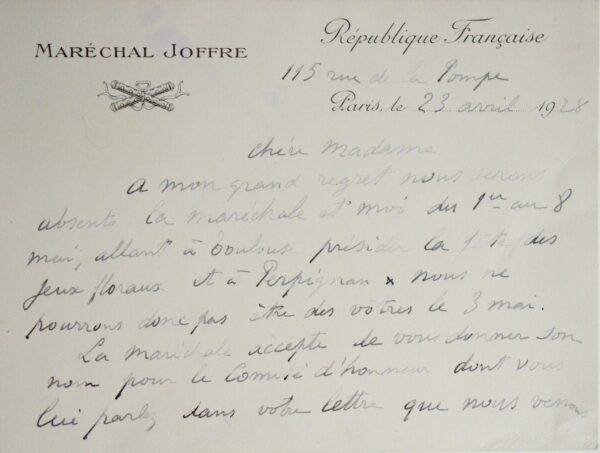 République Française
MARÉCHAL JOFFRE
115 rue de la Pompe
Paris, le 23 avril 1928
chère Madame
A mon grand regret nous serons
absents la maréchale et moi du 1er au 8
mai, allant à Toulouse présider la fête des
Jeux floraux et à Perpignan x nous ne
pourrons donc pas être des vôtres le 3 mai.
La maréchale accepte de vous donner son
nom pour le Comité d'honneur dont vous
lui parlez dans votre lettre que nous venons